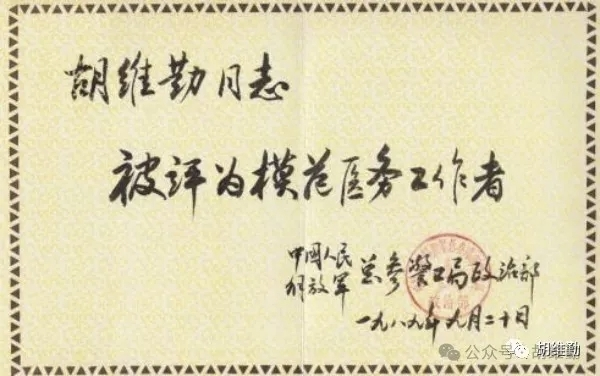 胡维勤同志
被评为模范医务工作者
中國人民
解放军 总参警卫局政治部
政治部
一九八九年九月二十日
公众号
胡维勤